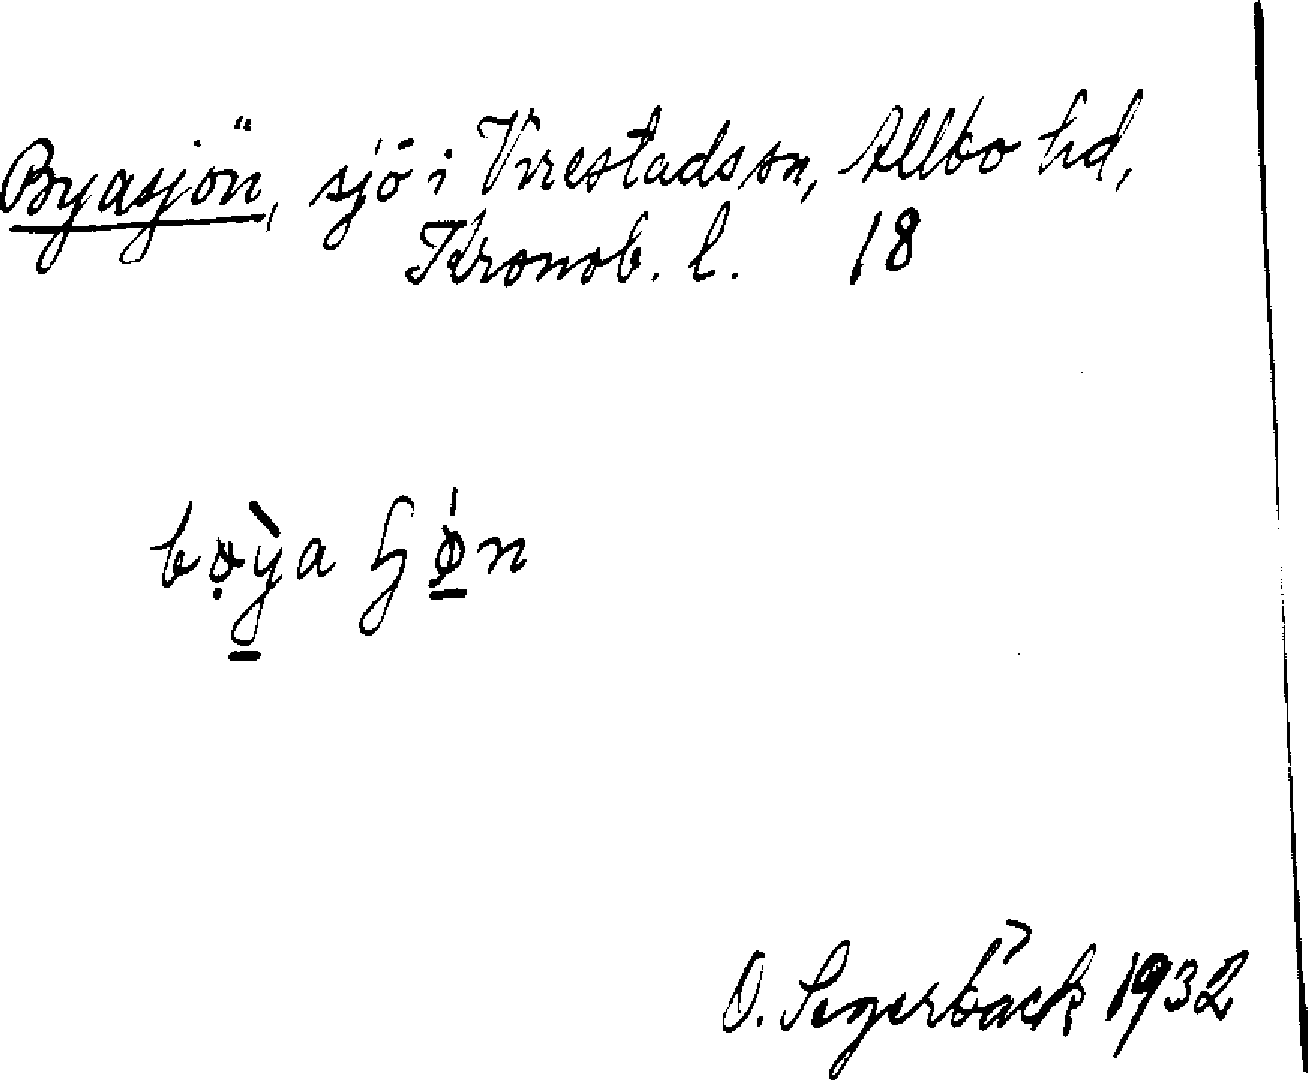 Byasjön, sjö i Virestads sn, Allbo hd,
Kronob. l. 18
O. Segerbäck 1932